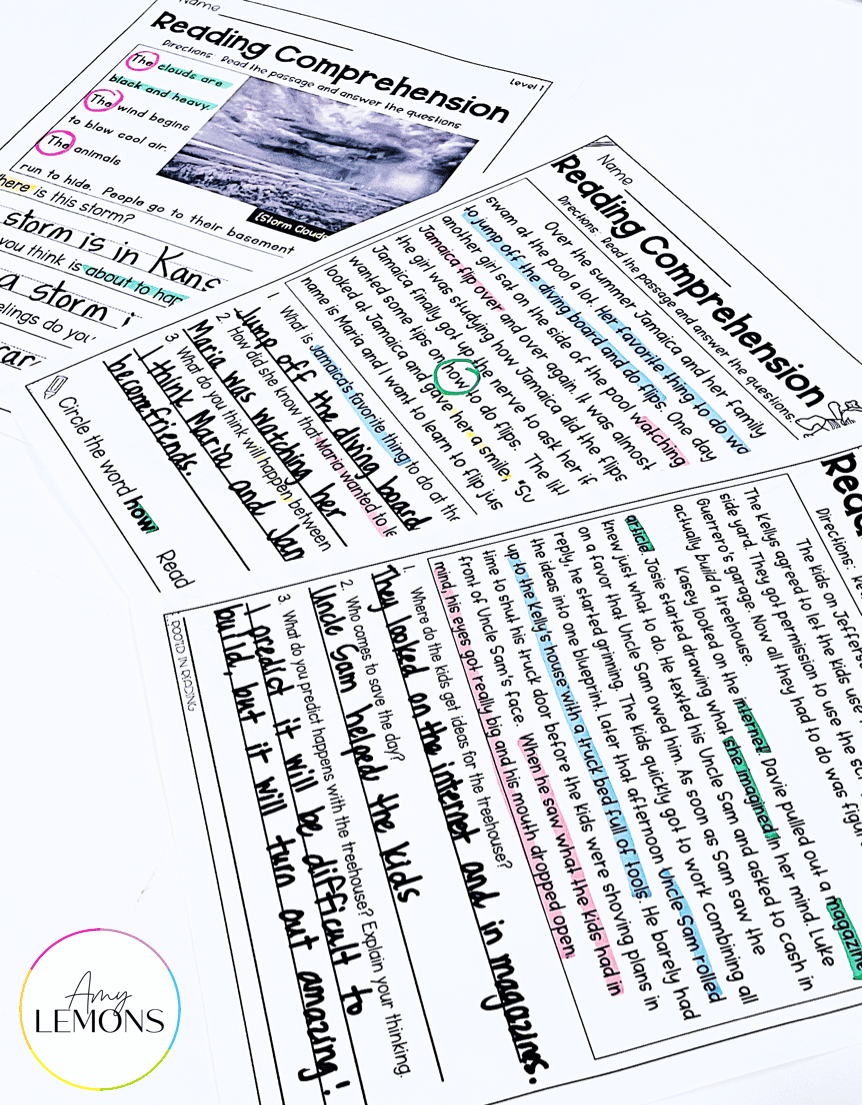 Name
Reading Comprehension
Level 1
Directions: Read the passage and answer the questions
The clouds are
black and heavy.
The wind begins
to blow cool air.
The animals
run to hide. People go to their basement
(Storm Clouds
here is this storm?
storm is in Kans
you think is about to hap
a storm i
elings do you
car
Name
Reading Comprehension
Directions: Read the passage and answer the questions.
Over the summer Jamaica and her family
swam at the pool a lot. Her favorite thing to do wa
to jump off the diving board and do flips. One day
another girl sat on the side of the pool watching
Jamaica flip over and over again. It was almost
the girl was studying how Jamaica did the flips
Jamaica finally got up the nerve to ask her if
wanted some tips on how to do flips. The litt
looked at Jamaica and gave her a smile, "Su
name is Maria and I want to learn to flip jus
1. What is Jamaica's favorite thing to do at the
Jump off the diving board
2. How did she know that Maria wanted to le
Maria was watching her
3. What do you think will happen between
I think Maria and Jan
become friends.
Circle the word how. Read
Read
Directions: Re
The kids on Jeffers
The Kellys agreed to let the kids use
side yard. They got permission to use the sc
Guerrero's garage. Now all they had to do was figur
actually build a treehouse.
Kasey looked on the internet. Davie pulled out a magazine
article. Josie started drawing what she imagined in her mind. Luke
knew just what to do. He texted his Uncle Sam and asked to cash in
on a favor that Uncle Sam owed him. As soon as Sam saw the
reply, he started grinning. The kids quickly got to work combining all
the ideas into one blueprint. Later that afternoon Uncle Sam rolled
up to the Kelly's house with a truck bed full of tools. He barely had
time to shut his truck door before the kids were shoving plans in
front of Uncle Sam's face. When he saw what the kids had in
mind, his eyes got really big and his mouth dropped open.
1. Where do the kids get ideas for the treehouse?
They looked on the internet and in magazines.
2. Who comes to save the day?
Uncle Sam helped the kids
3. What do you predict happens with the treehouse? Explain your thinking.
I predict it will be difficult to
build, but it will turn out amazing!
ROOTED IN READING
Amy
LEMONS